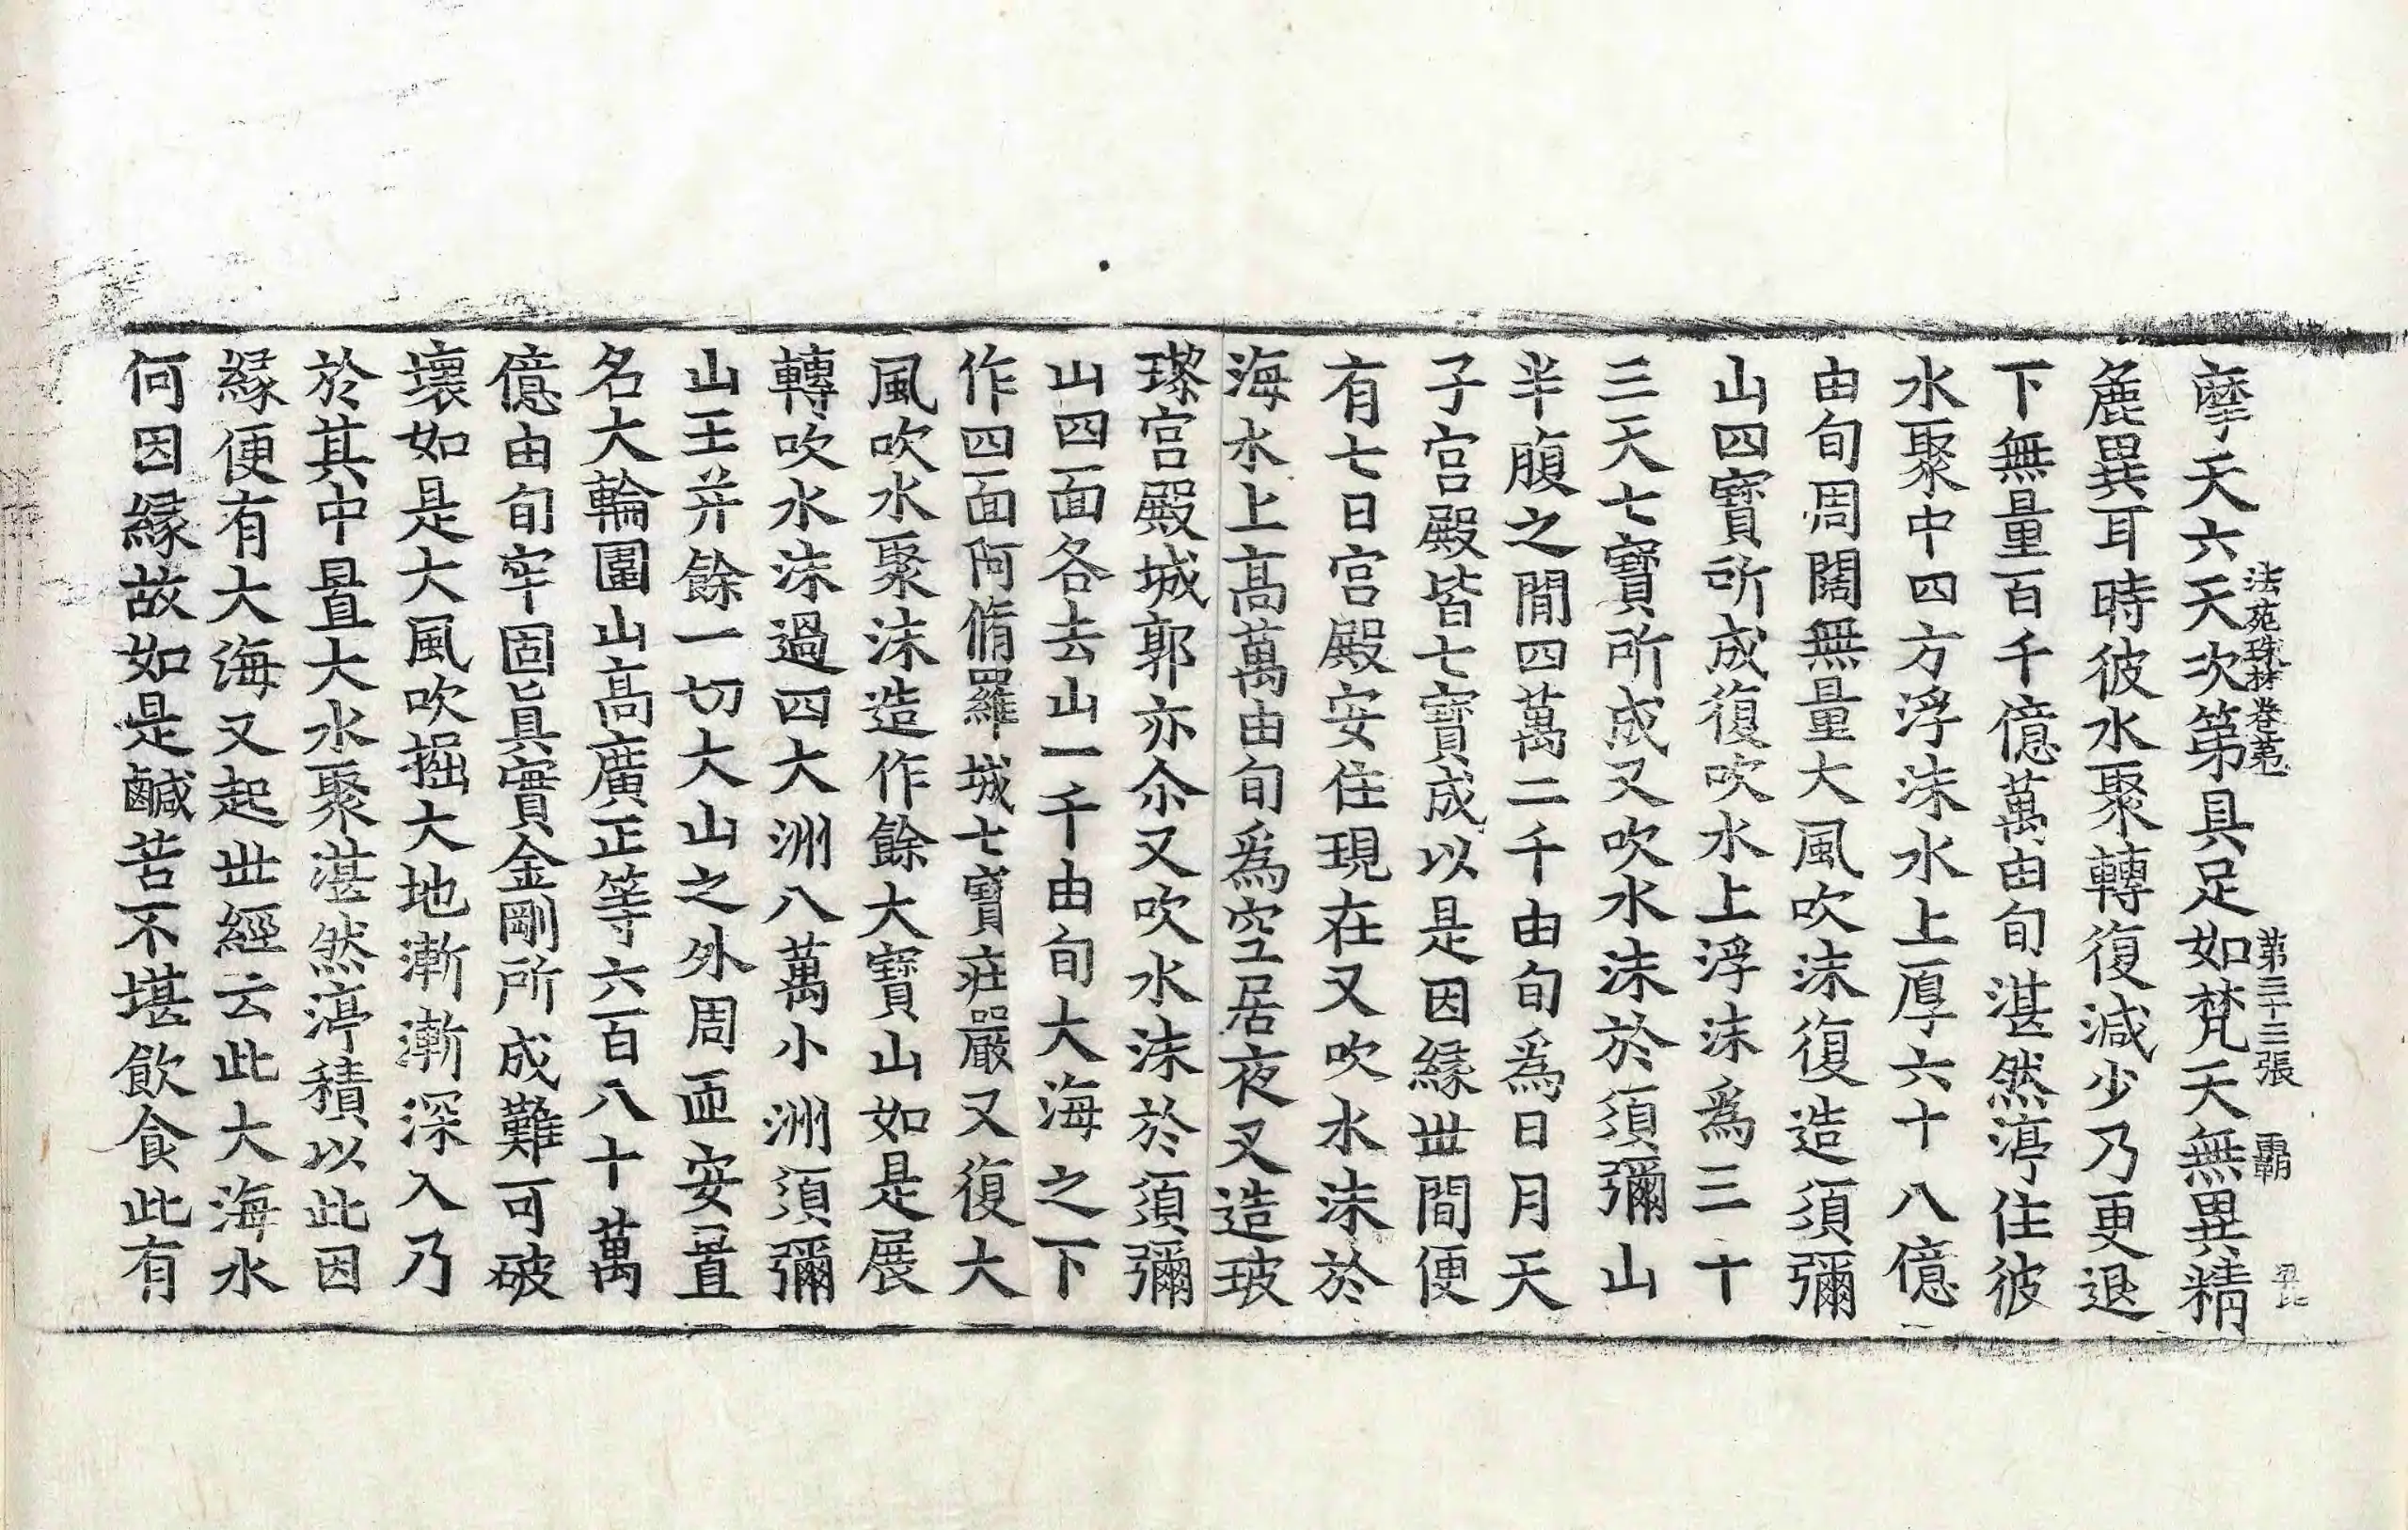 法苑珠林卷苐一 第三十三張 霸
摩天六天次第具足如梵天無異精
麁異耳時彼水聚轉復減少乃更退
下無量百千億萬由旬湛然渟住彼
水聚中四方浮沫水上厚六十八億
由旬周闊無量大風吹沫復造須彌
山四寶所成復吹水上浮沫爲三十
三天七寶所成又吹水沫於須彌山
半腹之閒四萬二千由旬爲日月天
子宮殿皆七寶成以是因緣丗間便
有七日宮殿安住現在又吹水沫於
海水上高萬由旬爲空居夜叉造玻
瓈宮殿城郭亦尒又吹水沫於須彌
山四面各去山一千由旬大海之下
作四面阿脩羅城七寶莊嚴又復大
風吹水聚沫造作餘大寶山如是展
轉吹水沫過四大洲八萬小洲須彌
山王并餘一切大山之外周匝安置
名大輪圍山高廣正等六百八十萬
億由旬牢固眞實金剛所成難可破
壞如是大風吹掘大地漸漸深入乃
於其中置大水聚湛然渟積以此因
緣便有大海又起丗經云此大海水
何因緣故如是鹹苦不堪飮食此有